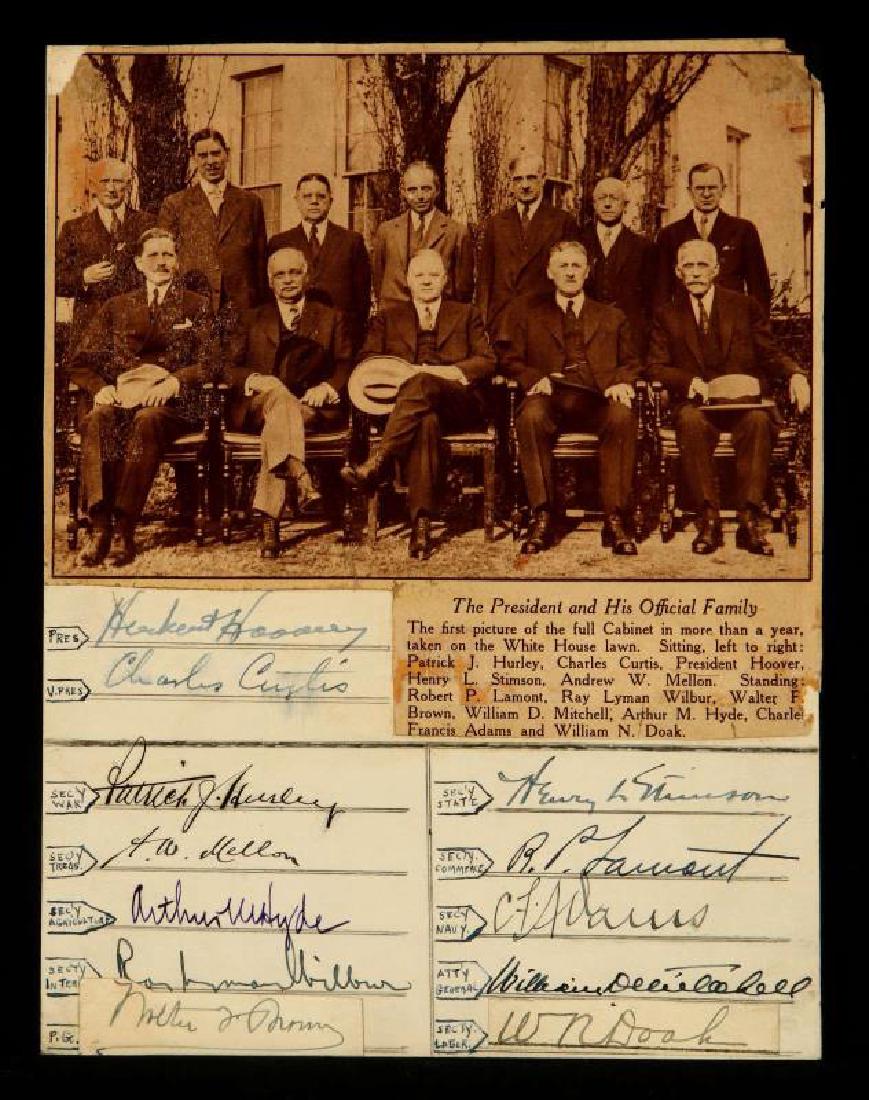 The President and His Official Family
The first picture of the full Cabinet in more than a year,
taken on the White House lawn. Sitting, left to right:
Patrick J. Hurley, Charles Curtis, President Hoover,
Henry L. Stimson, Andrew W. Mellon. Standing:
Robert P. Lamont, Ray Lyman Wilbur, Walter F.
Brown, William D. Mitchell, Arthur M. Hyde, Charle
Francis Adams and William N. Doak.
PRES Herbert Hoover
V. PRES Charles Curtis
SEC'Y WAR Patrick J. Hurley
SEC'Y TREAS. A. W. Mellon
SEC'Y AGRICULTURE Arthur M Hyde
SECTY INTER Ray Lyman Wilbur
P. G. Walter F Brown
SEC'Y STATE Henry L Stimson
SECTY. COMMERCE R. P. Lamont
SECY NAVY C F Adams
ATTY GENERAL William D Mitchell
SECTY. LABOR. W N Doak